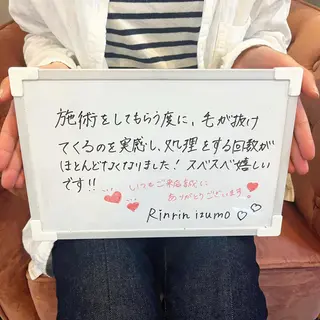 施術をしてもらう度に、毛が抜け
てくるのを実感し、処理をする回数が
ほとんどなくなりました！スベスベ嬉しい
です!!
いつもご来店誠に
ありがとうございます。
Rinrin izumo